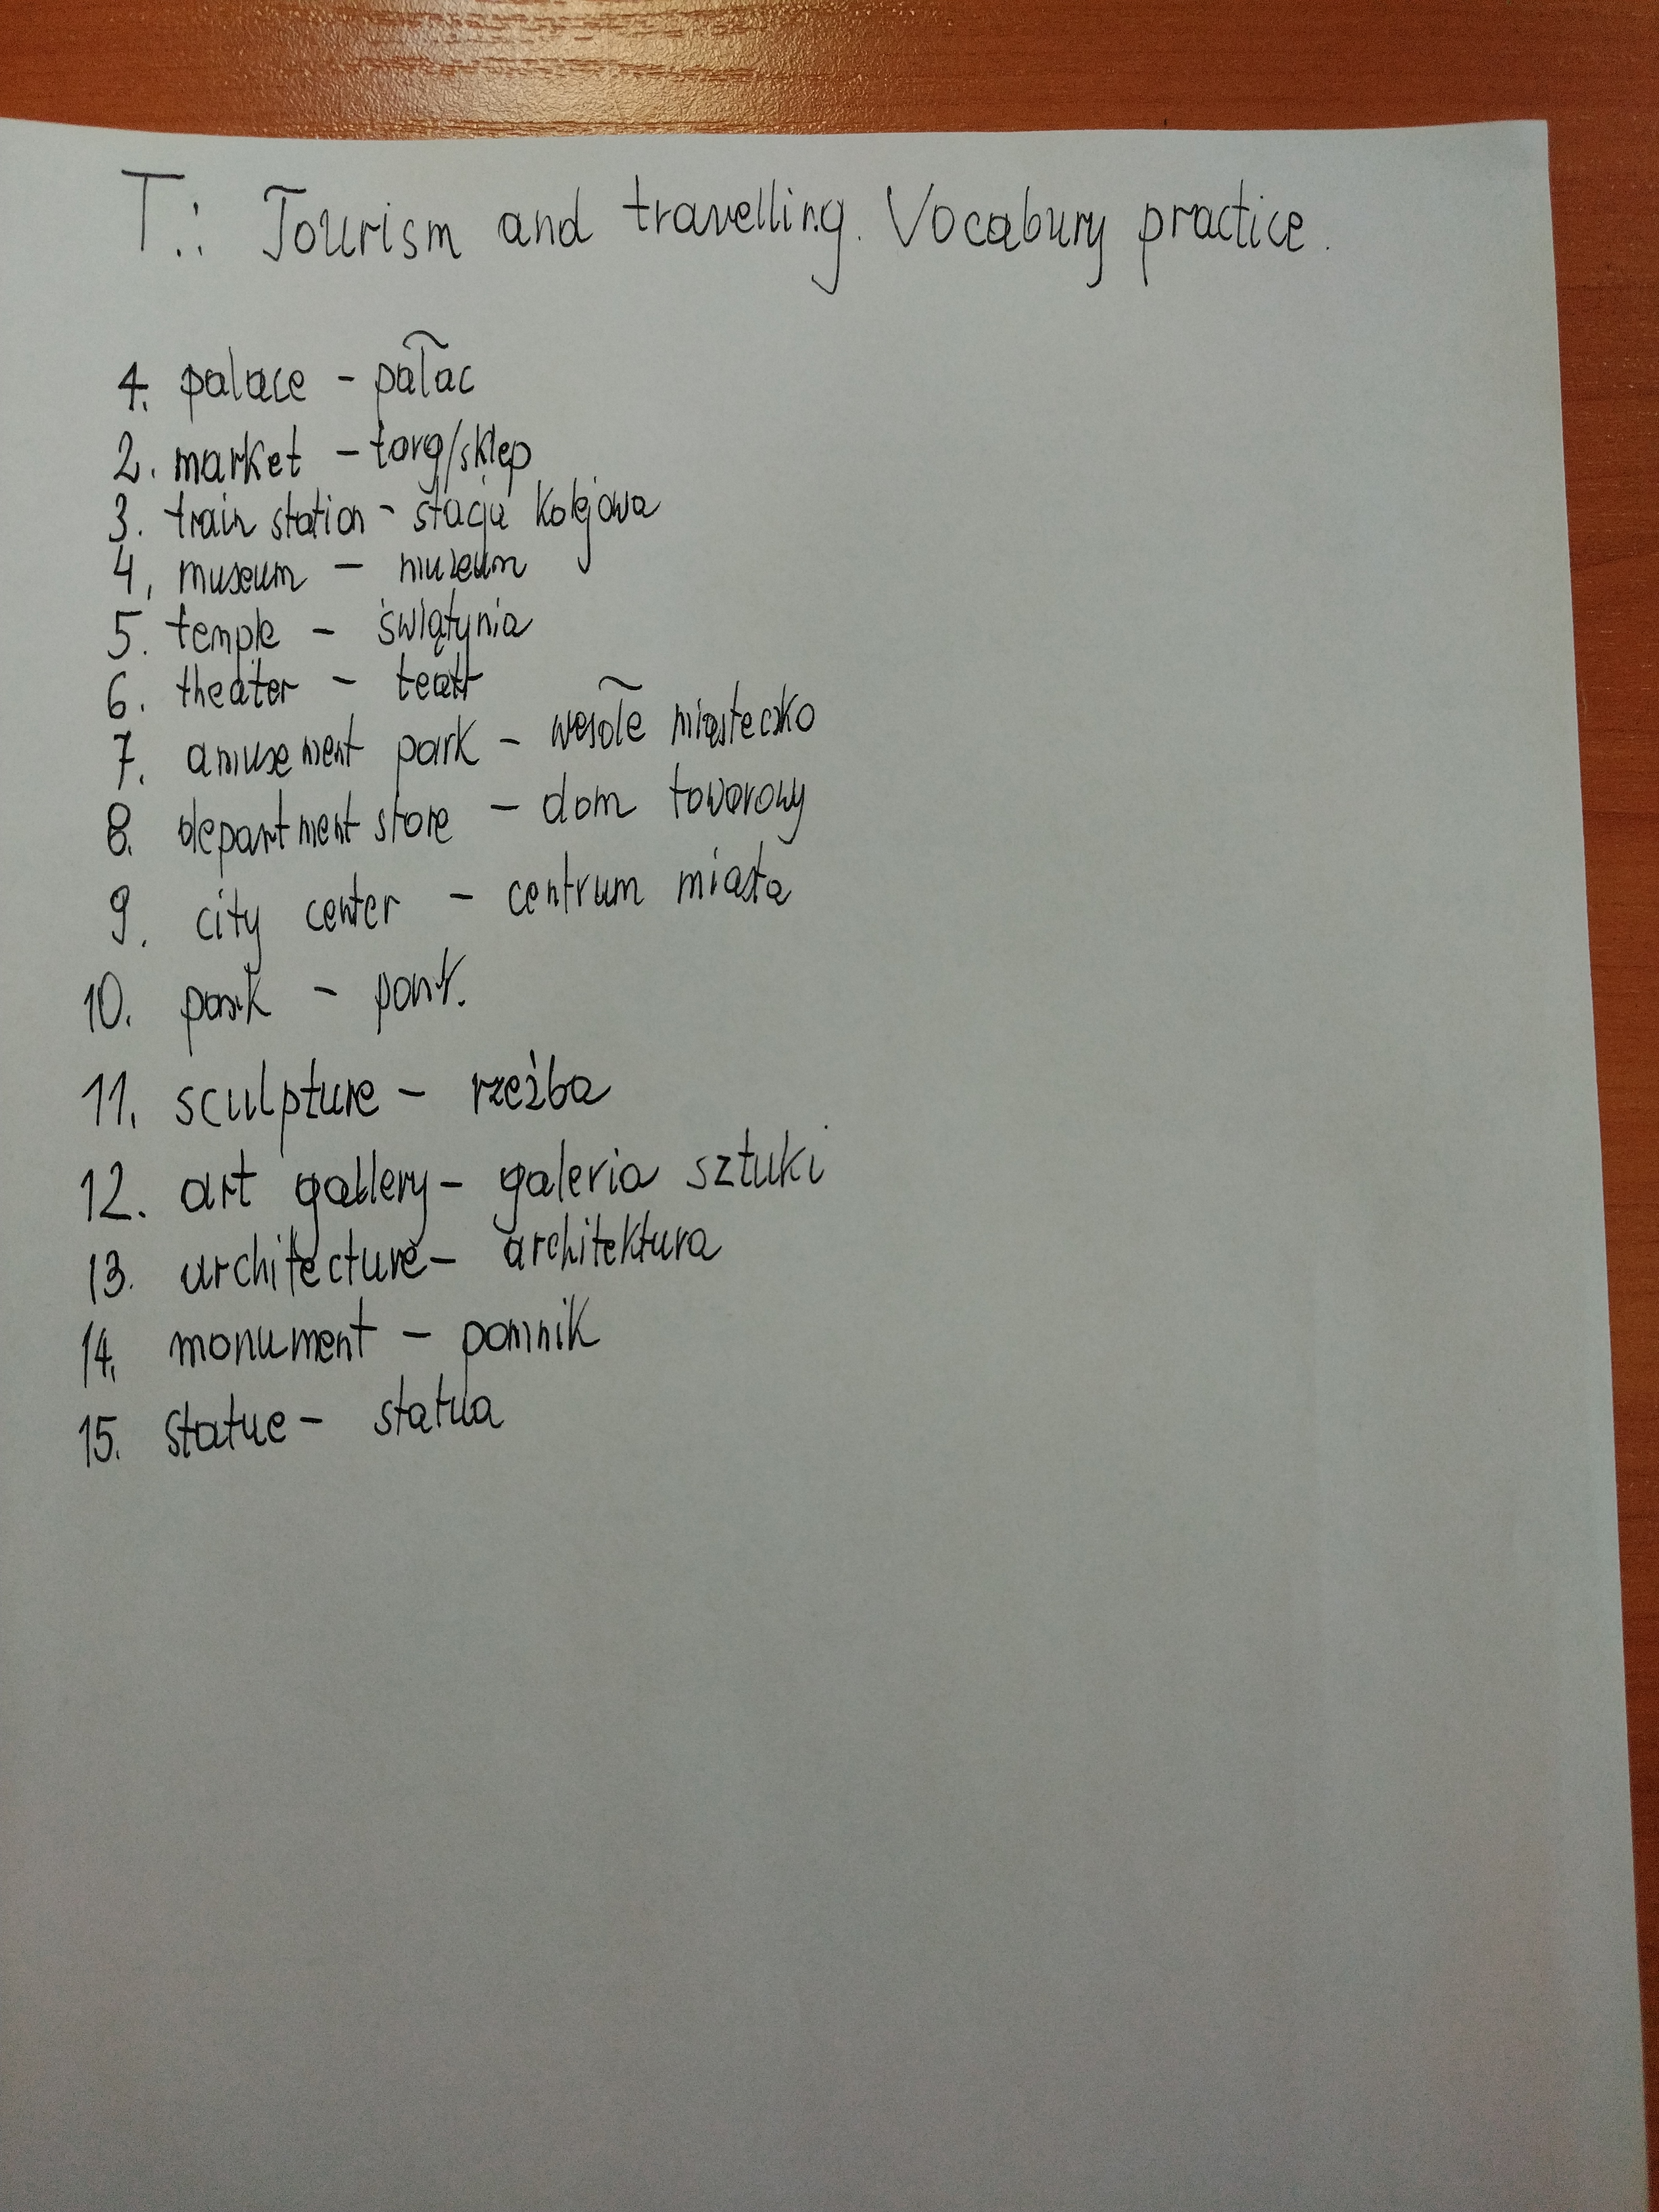 T.: Tourism and travelling. Vocabury practice.
1. palace - pałac
2. market - targ/sklep
3. train station - stacja kolejowa
4. museum - muzeum
5. temple - świątynia
6. theater - teatr
7. amusement park - wesołe miasteczko
8. department store - dom towarowy
9. city center - centrum miasta
10. park - park.
11. sculpture - rzeźba
12. art gallery - galeria sztuki
13. architecture - architektura
14. monument - pomnik
15. statue - statua